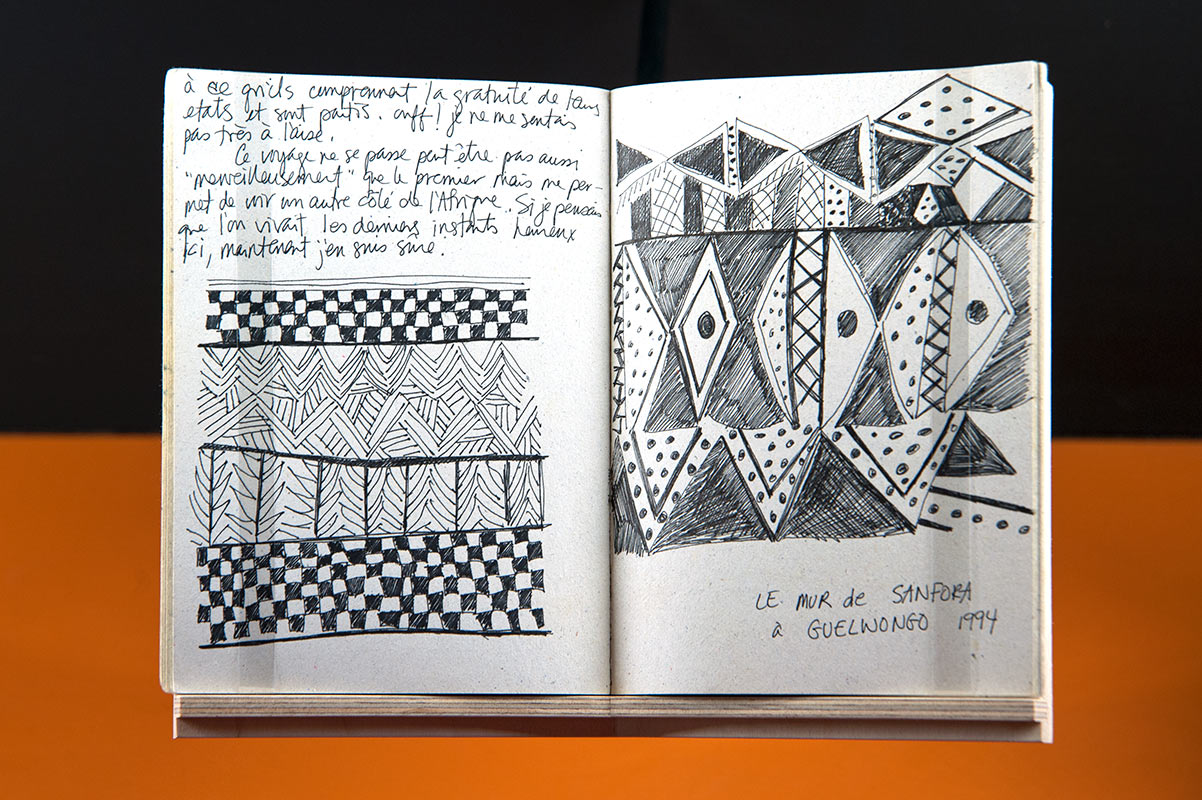 à ce qu'ils comprennat la gratuité de leurs
etats et sont partis. ouff! je ne me sentais
pas très à l'aise.
Ce voyage ne se passe peut être pas aussi
"merveilleusement" que le premier mais me per-
met de voir un autre côté de l'Afrique. Si je pensais
que l'on vivait les derniers instants heureux
ici, maintenant j'en suis sûre.
LE MUR de SANFORA
à GUELWONGO 1994